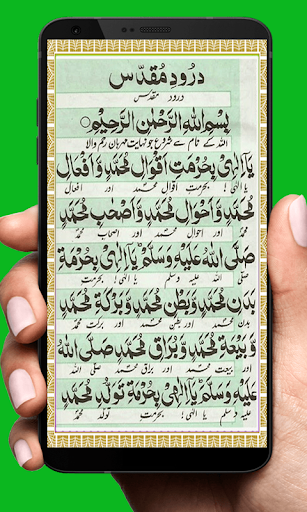 درودِ مُقدّس
درود مقدس
بِسْمِ اللهِ الرَّحْمٰنِ الرَّحِيْمِ
اللہ کے نام سے شروع جو نہایت مہربان رحم والا
يَآ اِلٰهِيْ بِحُرْمَتِ اَقْوَالِ مُحَمَّدٍ وَّ اَفْعَالِ
یا الٰہی! بحرمتِ اقوال محمد اور افعال
مُحَمَّدٍ وَّ اَحْوَالِ مُحَمَّدٍ وَّ اَصْحٰبِ مُحَمَّدٍ
محمد اور احوال محمد اور اصحاب محمد
صَلَّى اللهُ عَلَيْهِ وَسَلَّمَ يَآ اِلٰهِيْ بِحُرْمَةِ
صلی اللہ علیہ وسلم یا الٰہی! بحرمتِ
بَدَنِ مُحَمَّدٍ وَّ بَطْنِ مُحَمَّدٍ وَّ بَرَكَةِ مُحَمَّدٍ
بدن محمد اور بطن محمد اور برکت محمد
وَّ بَيْعَةِ مُحَمَّدٍ وَّ بُرَاقِ مُحَمَّدٍ صَلَّى اللهُ
اور بیعت محمد اور براق محمد صلی اللہ
عَلَيْهِ وَسَلَّمَ يَآ اِلٰهِيْ بِحُرْمَةِ تَوَلُّدِ مُحَمَّدٍ
علیہ وسلم یا الٰہی! بحرمتِ تولّد محمد